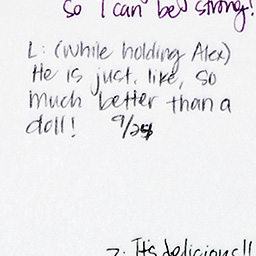 so I can be strong!
L: (while holding Alex)
He is just, like, so
much better than a
doll! 9/25
Z: It's delicious!!